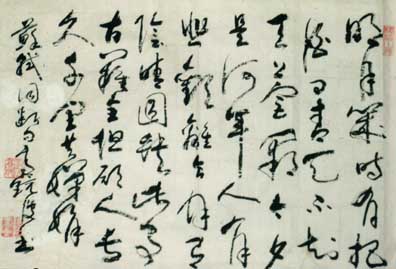 明月幾時有把
酒问青天不知
天上宫阙今夕
是何年人有
悲歡離合月有
陰晴圆缺此事
古難全但願人長
久千里共嬋娟
蘇軾詞數句